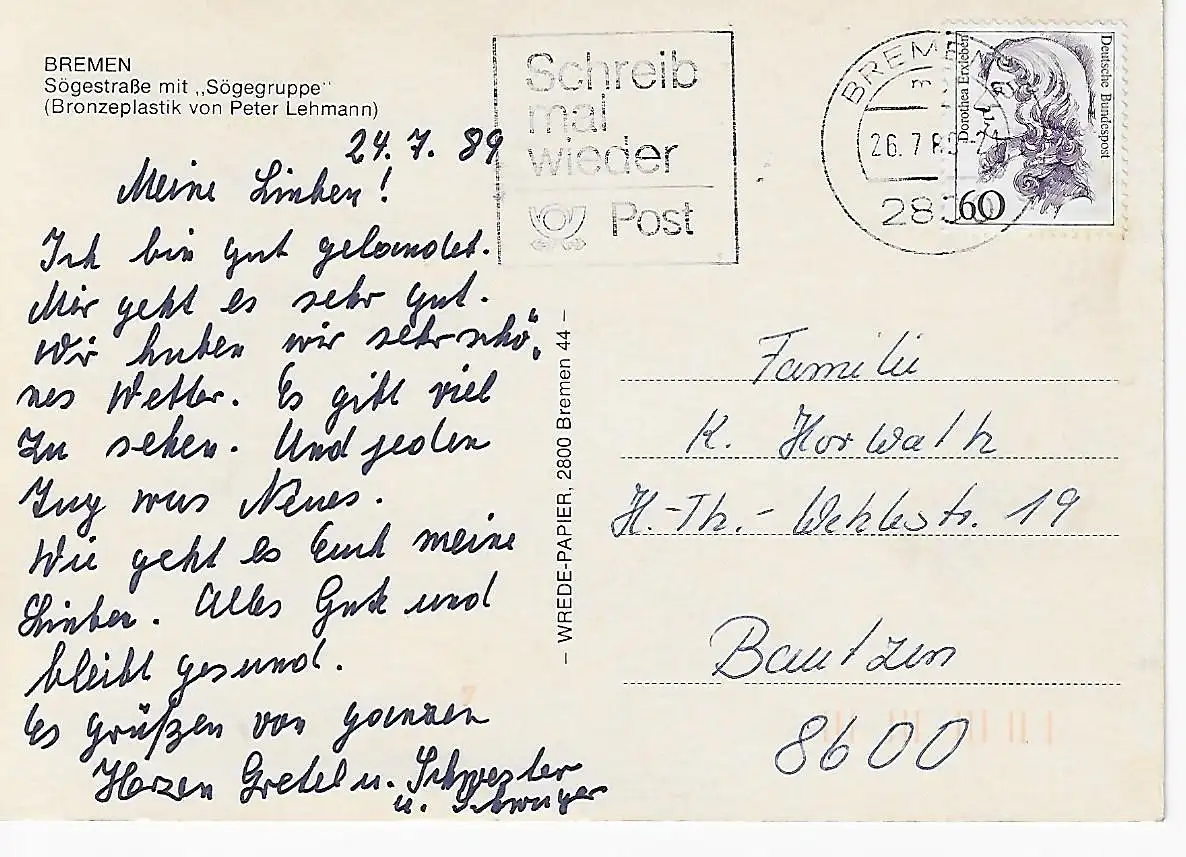 BREMEN
Sögestraße mit „Sögegruppe"
(Bronzeplastik von Peter Lehmann)
24. 7. 89
Meine Lieben!
Ich bin gut gelandet.
Mir geht es sehr gut.
Wir haben wir sehr schö„
nes Wetter. Es gibt viel
zu sehen. Und jeden
Tag was Neues.
Wie geht es Euch meine
Lieben. Alles Gute und
bleibt gesund.
Es grüßen von ganzen
Herzen Gretel u. Schwester
u. Schwager
– WREDE-PAPIER, 2800 Bremen 44 –
Schreib
mal
wieder
Post
BREMEN
26. 7. 89
28
Deutsche Bundespost
Dorothea Erxleben
60
Familie
K. Horwath
H.-Th.- 19
Bautzen
8600